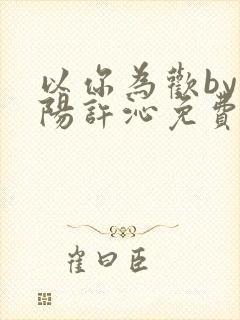 以你為歡by
陽許沁免費
崔曰臣